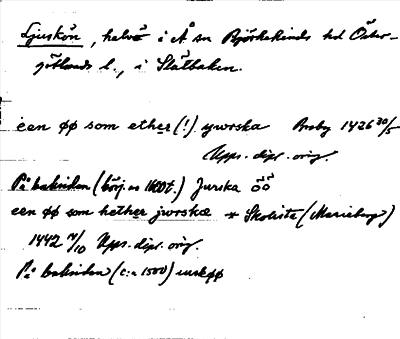 Ljuskön, halvö i Å sn Björkekinds hd Öster-
götlands l., i Slätbaken.
een øø som ether (!) ywrska Broby 1426 30/5
Upps. dipl. orig.
På baksidan (börj. av 1600t.) Jurska öö
een øø som hether jwrskæ * Skoista (Marieberg)
1442 /10 Upps. dipl. orig.
På baksidan (c:a 1500) iurskøø